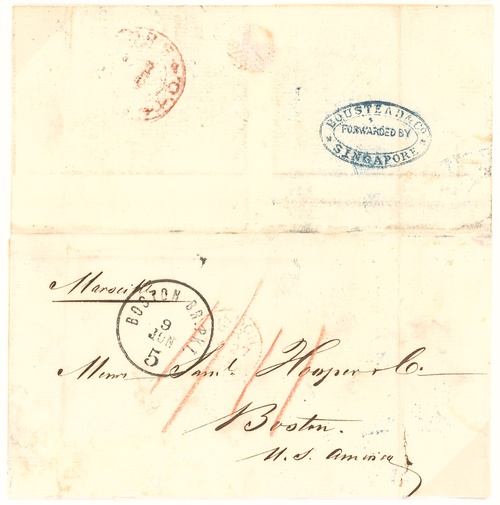 BOUSTEAD & Co
FORWARDED BY
SINGAPORE
Marseille
BOSTON BR. PKT
9
JUN
5
Messrs Saml. Hooper & Co.
Boston.
U.S. America